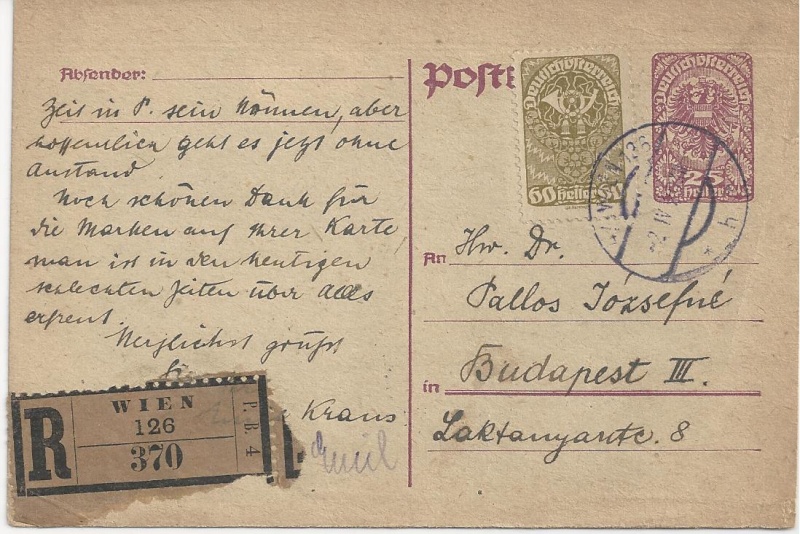 Absender:
Zeit in P. sein können, aber
hoffentlich geht es jetzt ohne
Anstand.
Noch schönen Dank für
die Marken auf Ihrer Karte
man ist in den heutigen
schlechten Zeiten über alles
erfreut.
Herzlichst grüsst
Sie
Kraus
Emil
R
WIEN
126
370
P. B. 4
Postk
Deutschösterreich
60 Heller 60
Deutschösterreich
25
Heller
WIEN 126
IV
An
Hw. Dr.
Pallos Józsefné
in
Budapest III.
Laktanyautc. 8